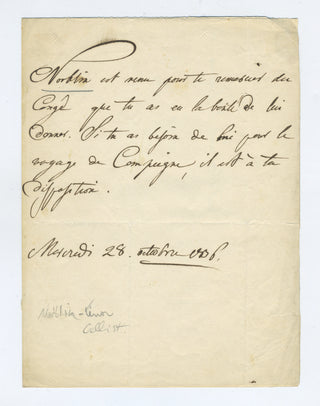 Norblin est venu pour te remercier du
Congé que tu as eu la bonté de lui
donner. Si tu as besoin de lui pour le
voyage de Compiegne, il est à ta
disposition.
Mercredi 28. octobre
Norblin - tenor
Cellist